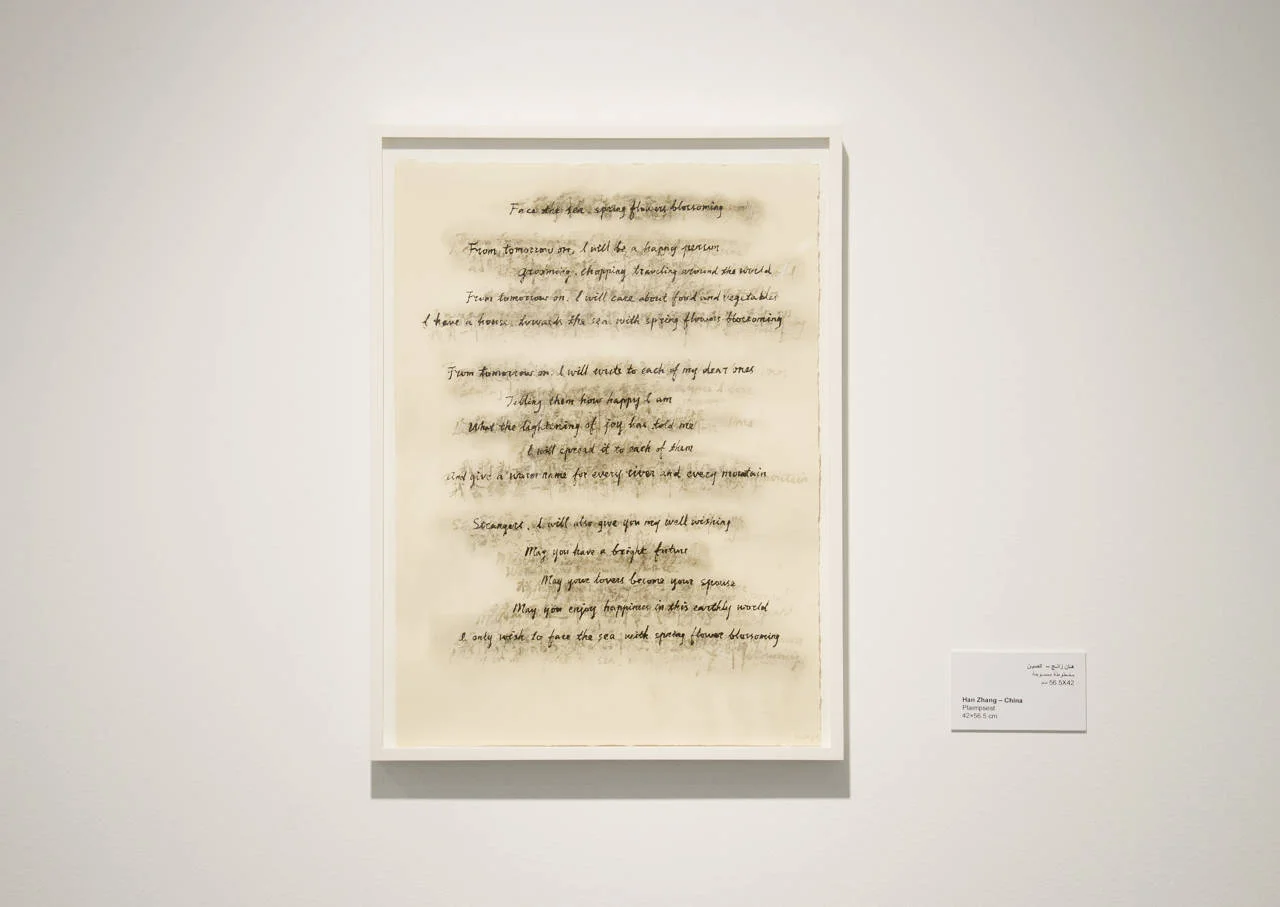 Face the sea, spring flowers blossoming
From tomorrow on, I will be a happy person
grooming, chopping, traveling around the world
From tomorrow on, I will care about food and vegetables
I have a house, towards the sea, with spring flowers blossoming
From tomorrow on, I will write to each of my dear ones
Telling them how happy I am
What the lightening of joy has told me
I will spread it to each of them
And give a warm name for every river and every mountain
Strangers, I will also give you my well wishing
May you have a bright future
May your lovers become your spouse
May you enjoy happiness in this earthly world
I only wish to face the sea, with spring flower blossoming
هان زانج – الصين
مخطوطة ممسوحة
56.5X42 سم
Han Zhang – China
42×56.5 cm